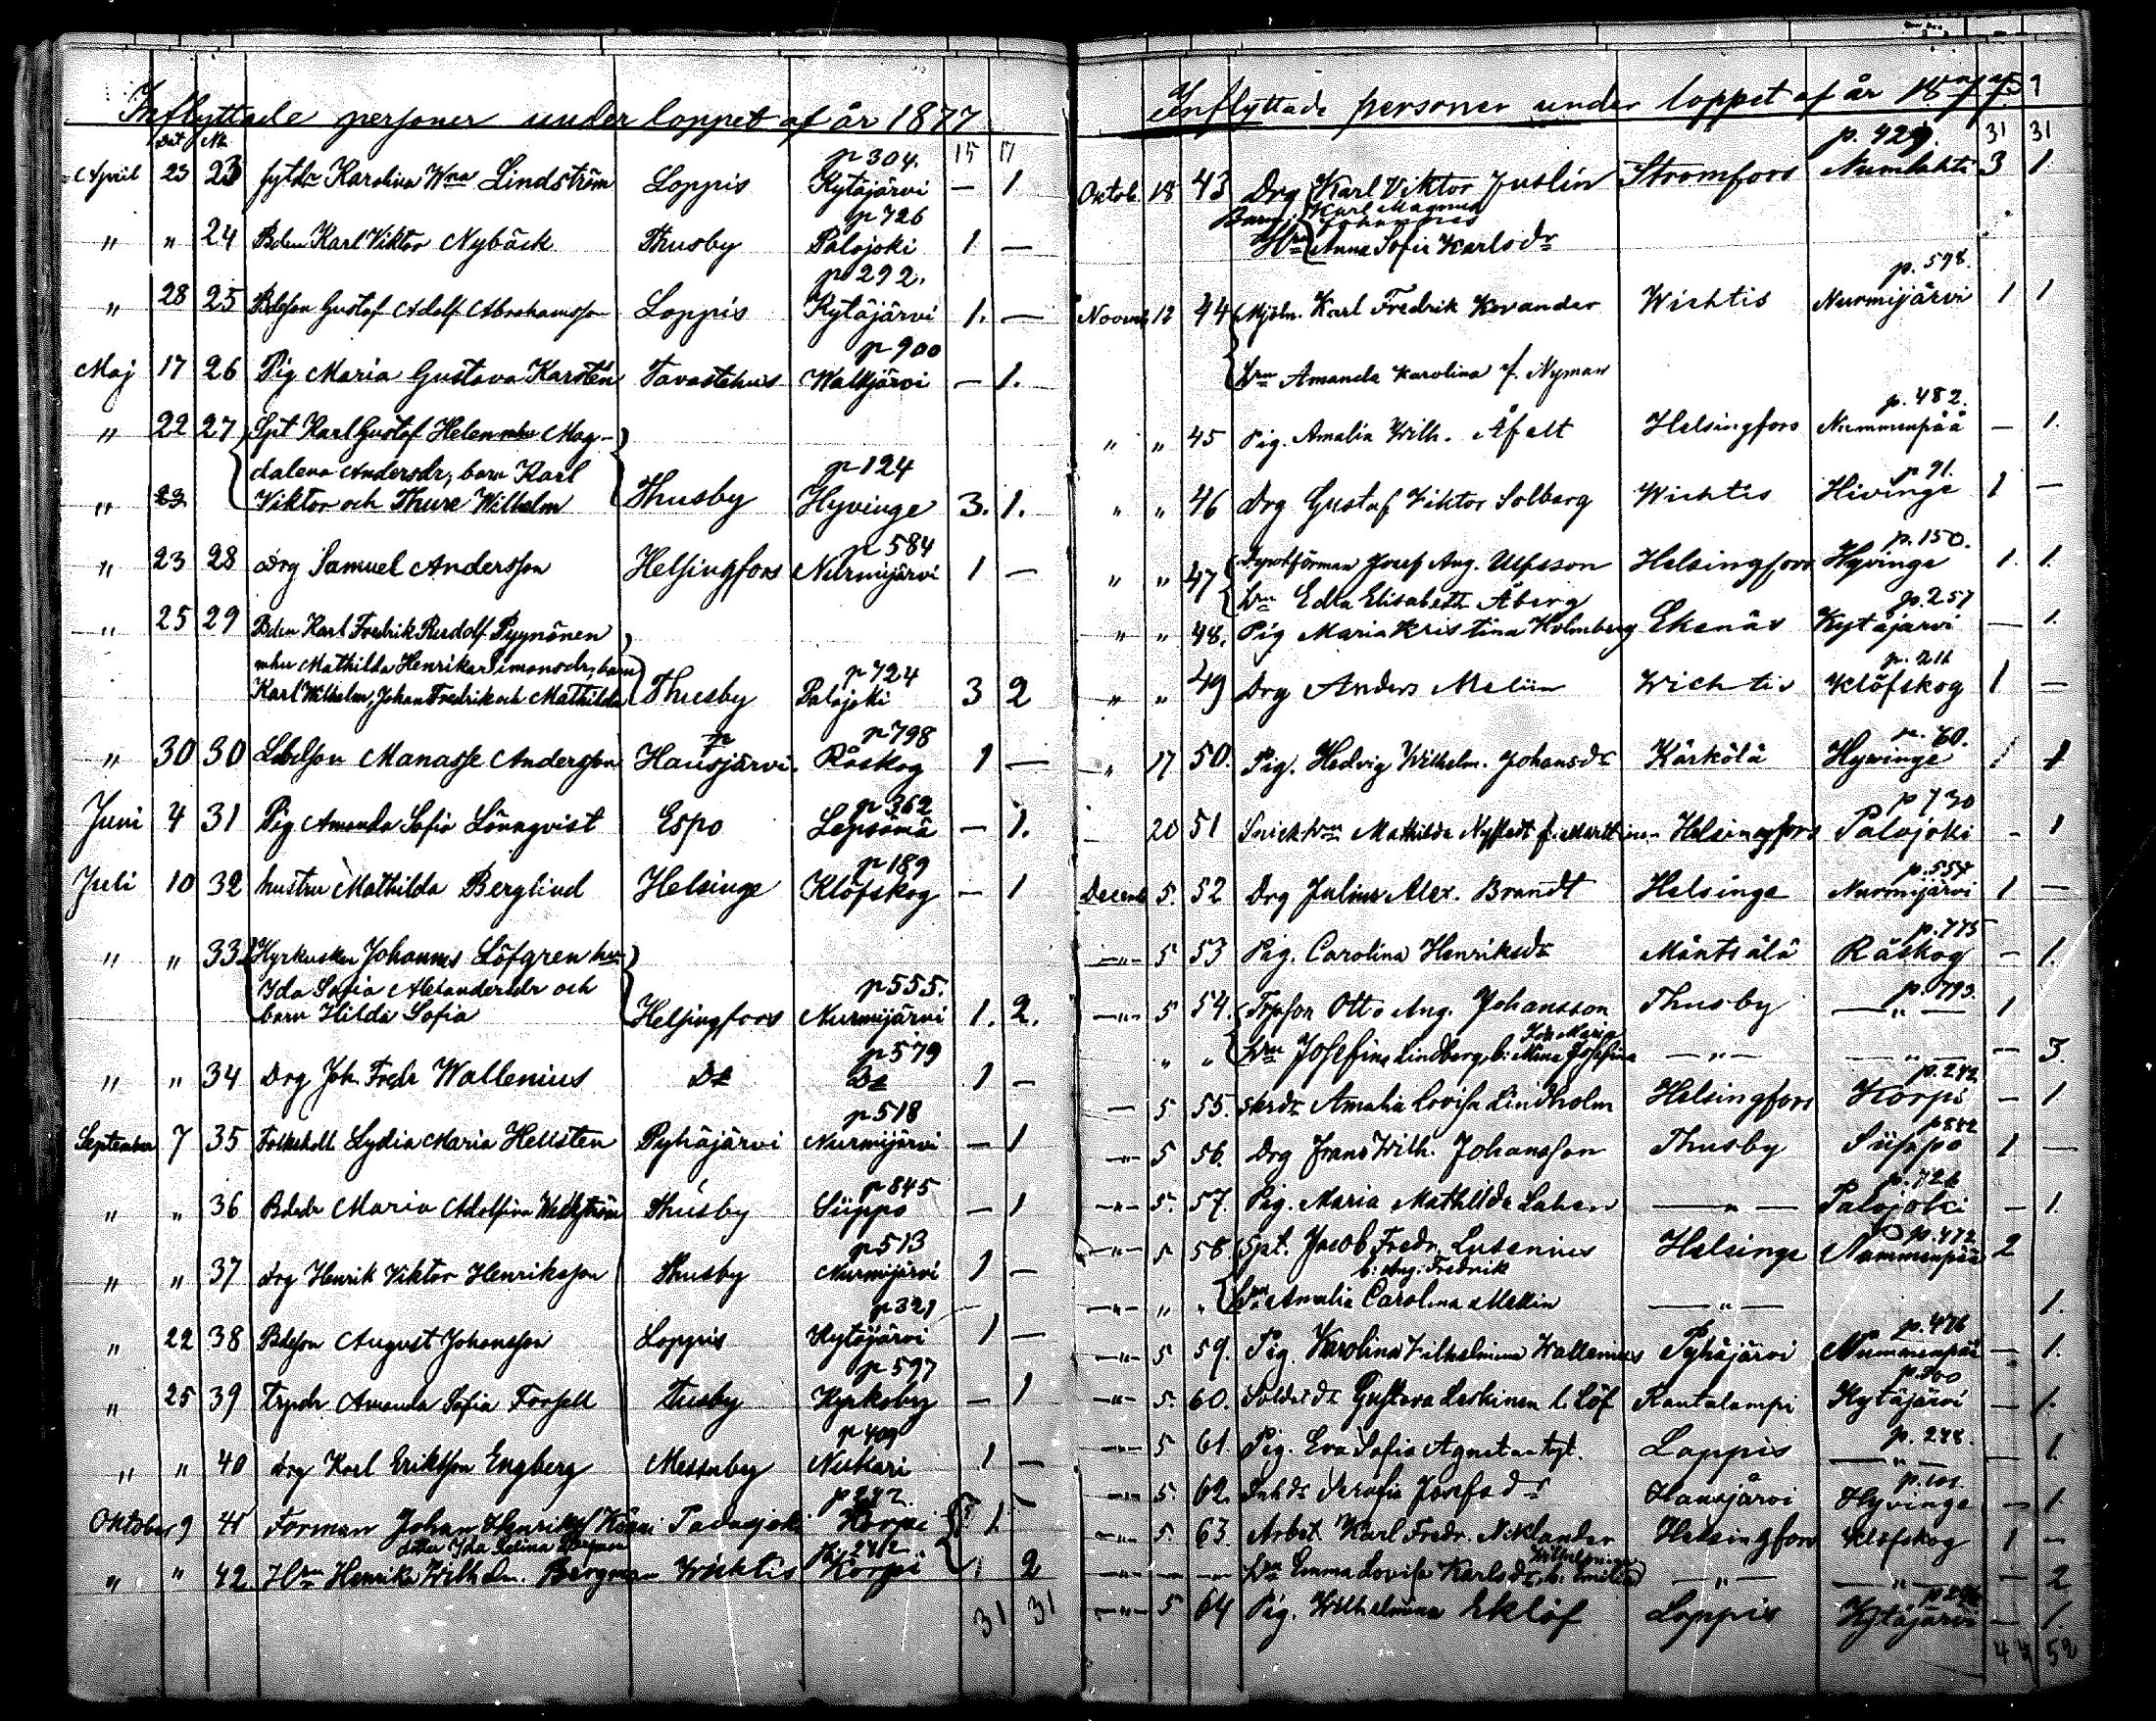 Inflyttade personer under loppet af år 1877
Dat No 15 17
April 23 23 Karolina Wna Lindström Loppis p 304. Kytäjärvi — 1
" " 24 Karl Viktor Nybäck Thusby p 726 Palojoki 1 —
" 28 25 Bdeson Gustaf Adolf Abrahamsson Loppis p 292. Kytäjärvi 1. —
Maj 17 26 Pig Maria Gustava Karstén Tavastehus p 900 Walkjärvi — 1.
" 22 27 Spt Karl Gustaf Helen mhu Mag-
dalena Andersdr, barn Karl
" 23 Viktor och Thure Wilhelm Thusby p 124 Hyvinge 3. 1.
" 23 28 Drg Samuel Andersson Helsingfors p 584 Nurmijärvi 1 —
" 25 29 Bden Karl Fredrik Rudolf Pyynönen
mhu Mathilda Henrika Simonsdr, barn
Karl Wilhelm, Johan Fredrik och Mathilda Thusby p 724 Palojoki 3 2
" 30 30 Manasse Andersson Hausjärvi p 798 Råskog 1 —
Juni 4 31 Pig Amanda Sofia Lönnqvist Espo p 362 Lepsämä — 1.
Juli 10 32 hustru Mathilda Berglind Helsinge p 189 Klöfskog — 1
" " 33 Hyrkusken Johannes Löfgren hu
Ida Sofia Alexandersdr och
barn Hilda Sofia Helsingfors p 555. Nurmijärvi 1. 2.
" " 34 Drg Joh. Fredr Wallenius Do p 579 Do 1 —
September 7 35 Lydia Maria Hellsten Pyhäjärvi p 518 Nurmijärvi — 1
" " 36 Bdedr Maria Adolfina Wellström Thusby p 845 Siippo — 1
" " 37 drg Henrik Viktor Henriksson Thusby p 513 Nurmijärvi 1 —
" 22 38 Bdeson August Johansson Loppis p 321 Kytäjärvi 1 —
" 25 39 Amanda Sofia Forsell Tusby p 597 Kyrkoby — 1
" " 40 drg Karl Eriksson Engberg Messuby p 409 Nukari 1 —
Oktober 9 41 Förman Johan Henriksson Padasjoki p 242. Korpi 1
dotter Ida
" " 42 Hru Henrika Wilhelm. Bergman Wichtis p. 242 Korpi 1 2
31 31
Inflyttade personer under loppet af år 1877
31 31
Oktob. 18 43 Drg Karl Viktor Juslin Strömfors p. 429. Numlahti 3 1.
Barn: Karl Magnus
Johannes
Hru Anna Sofia Karlsdr
Novemb 12 44 Mjöln. Karl Fredrik Kovander Wichtis p. 598. Nurmijärvi 1 1
Hru Amanda Karolina f. Nyman
" " 45 Pig. Amalia Wilh. Åfelt Helsingfors p. 482. Nummenpää — 1.
" " 46 Drg Gustaf Viktor Solberg Wichtis p 91. Hivinge 1 —
" " 47 Josef Aug. Ulfsson Helsingfors p. 150. Hyvinge 1. 1.
Hru Edla Elisabeth Åberg
" " 48. Pig Maria Kristina Holmberg Ekenäs p. 257 Kytäjärvi — 1.
" " 49 Drg Anders Melin Wichtis p. 211 Klöfskog 1 —
" 17 50. Pig. Hedvig Wilhelm. Johansdr Kärkölä p. 60. Hyvinge 1 1
20 51 Mathilda Nystedt f. Helsingfors p 730 Palojoki - 1
Decemb 5. 52 Drg Julius Alex. Brandt Helsinge p. 554 Nurmijärvi 1 —
—"— 5 53 Pig. Carolina Henriksdr Mäntsälä p. 775 Råskog — 1.
—"— 5 54. Torpson Otto Aug. Johansson Thusby p. 793. —"— 1
Ida Maria
" " Hru Josefina Lindberg b: Mina Josefina —"— —"— — 3.
— 5 55. Amalia Lovisa Lindholm Helsingfors p. 242 Korpi — 1
—"— 5 56. Drg Frans Wilh. Johansson Thusby p 842 Siippo 1 —
—"— 5. 57. Pig. Maria Mathilda Lahen —"— p. 726 Palojoki — 1.
—"— 5 58. Spt. Jacob Fredr. Lusenius Helsinge p. 472 Nummenpää 2
b: Aug. Fredrik
—"— " " Hru Amalia Carolina Mellin —"— 1.
—"— 5 59. Pig. Karolina Vilhelmina Wallenius Pyhäjärvi p. 476 Nummenpää — 1.
—"— 5. 60. Soldatdr Gustava Leskinen l. Löf Rautalampi p. 300 Kytäjärvi — 1.
—"— 5 61. Pig. Eva Sofia Loppis p. 288. —"— — 1.
—"— 5. 62. Serafia Josefsdr Hausjärvi p. 101 Hyvinge — 1.
—"— 5. 63. Arbet. Karl Fredr. Niklander Helsingfors Klöfskog 1 —
—"— — — Hru Emma Lovisa Karlsdr, b: Emilia Wilhelmina —"— —"— — 2
—"— 5 64 Pig. Wilhelmina Eklöf Loppis Kytäjärvi — 1.
44 52